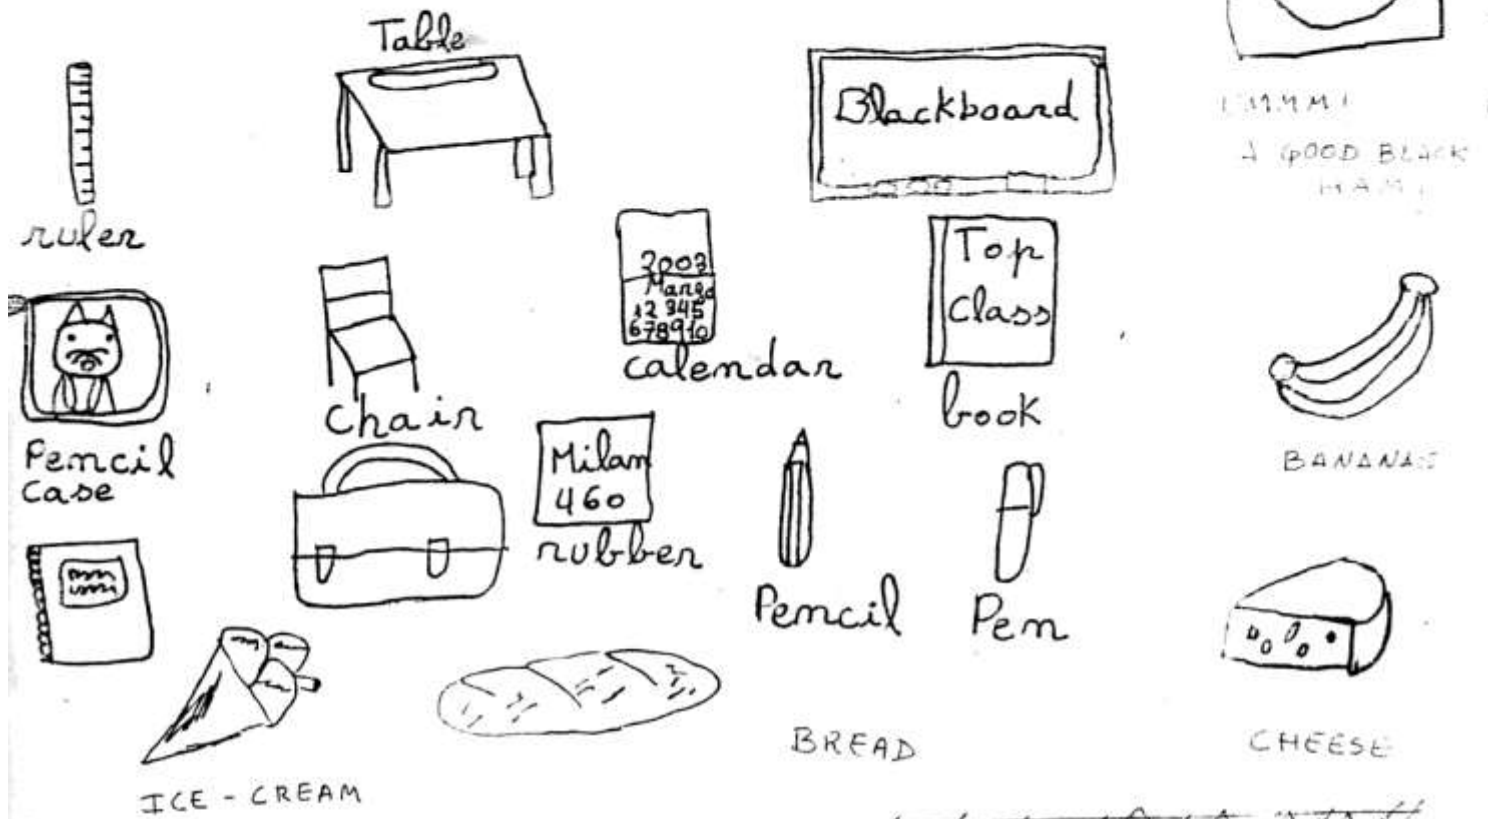 Table
Blackboard
A GOOD BLACK
HAM
ruler
2003
12345
678910
calendar
Top
Class
book
Chair
Pencil
case
Milan
460
rubber
BANANAS
Pencil
Pen
BREAD
CHEESE
ICE - CREAM